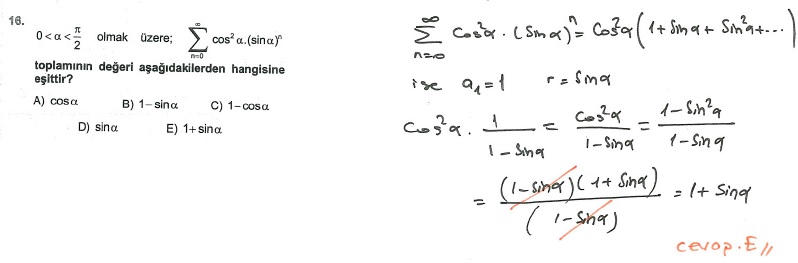 16.
0 < α < π/2 olmak üzere; ∑_{n=0}^{∞} cos²α.(sinα)ⁿ
toplamının değeri aşağıdakilerden hangisine
eşittir?
A) cosα B) 1−sinα C) 1−cosα
D) sinα E) 1+sinα
∑_{n=0}^{∞} Cos²α · (Sinα)ⁿ = Cos²α (1 + Sinα + Sin²α + ...)
ise a₁=1 r=Sinα
Cos²α · 1/(1−Sinα) = Cos²α/(1−Sinα) = (1−Sin²α)/(1−Sinα)
= (1−Sinα)(1+Sinα)/(1−Sinα) = 1+Sinα
cevap.E//